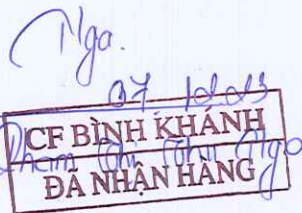 Nga.
07
CF BÌNH KHÁNH
Phạm Thị Thu Nga
ĐÃ NHẬN HÀNG